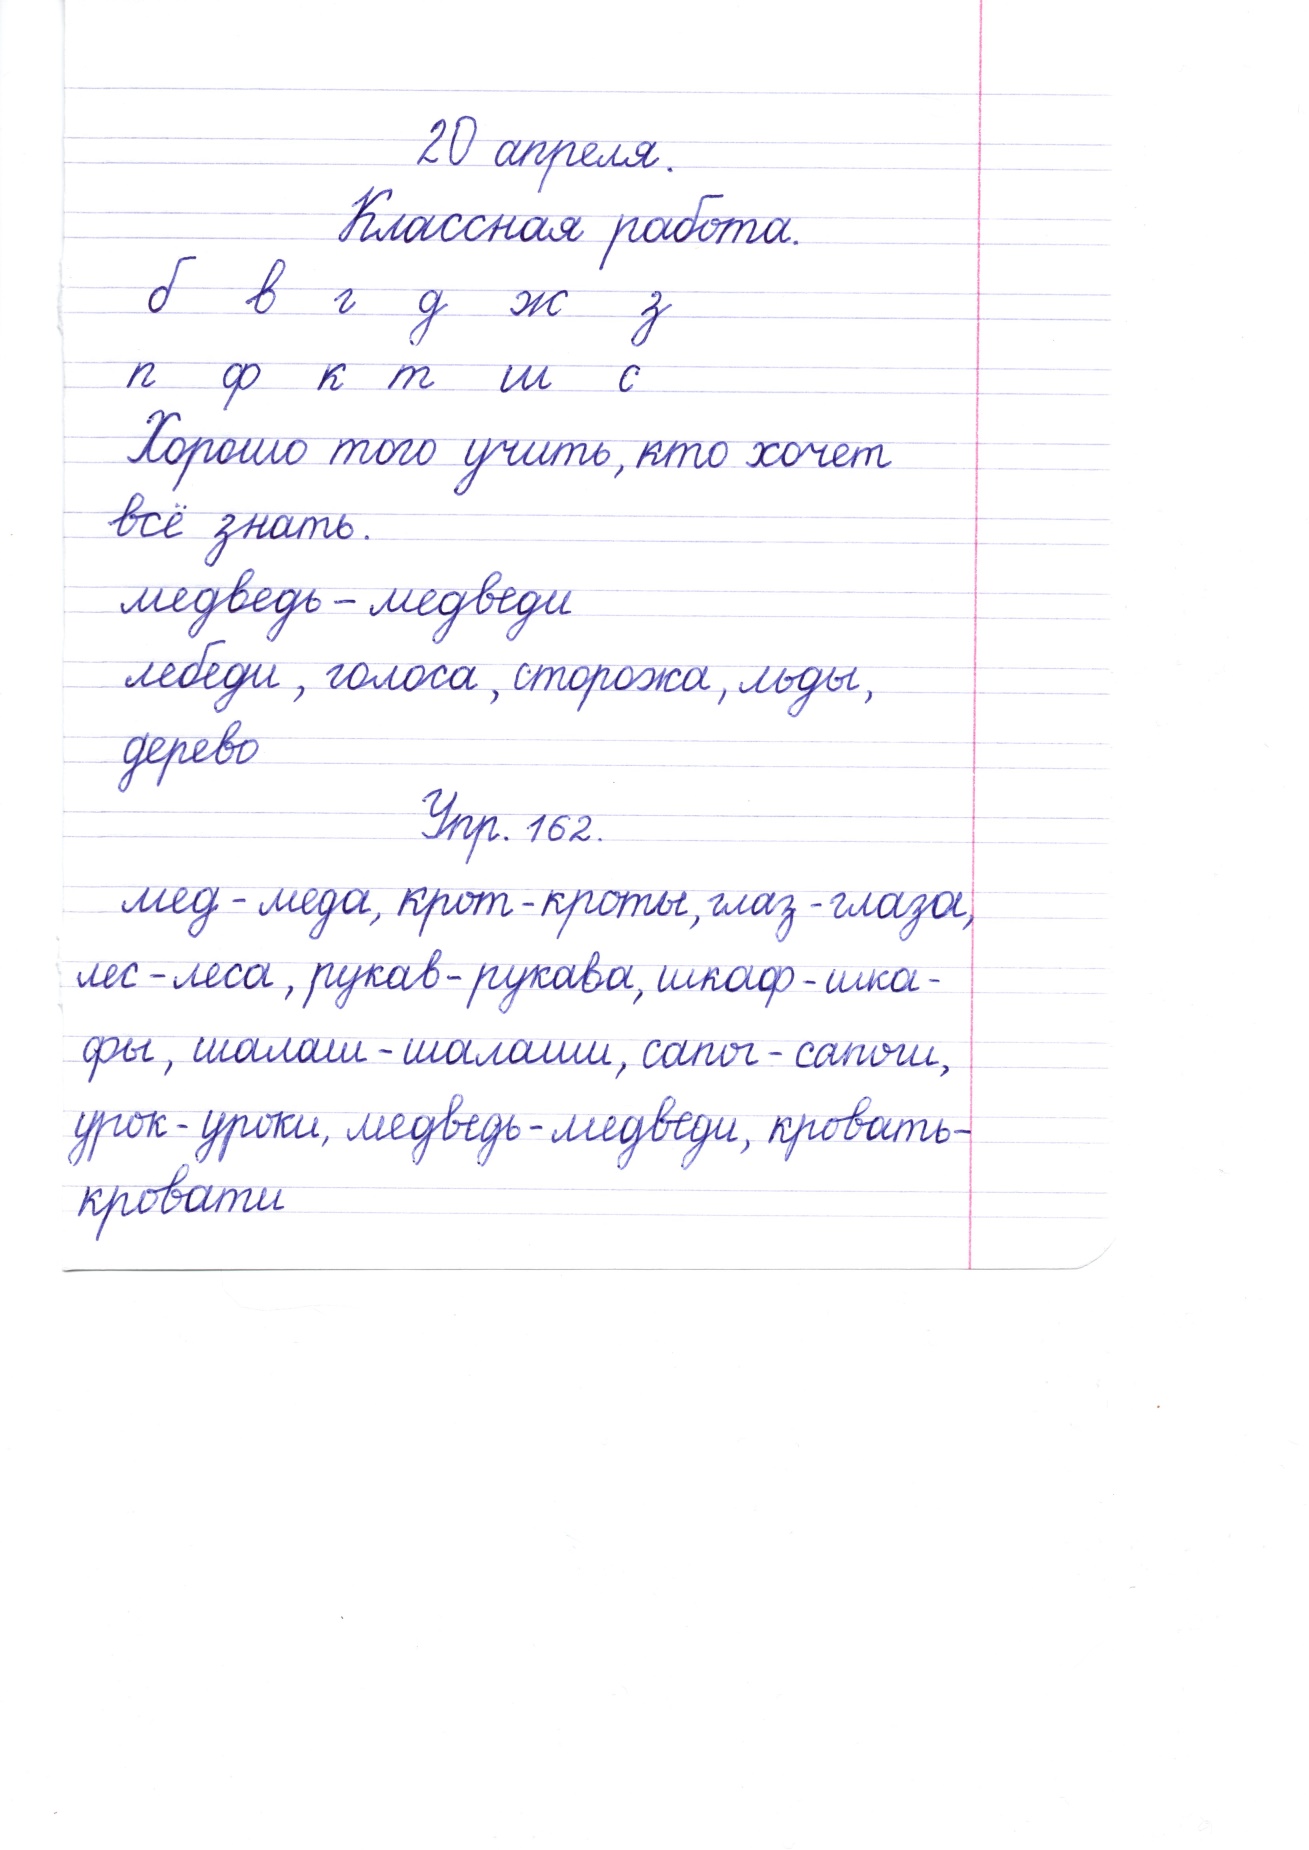 20 апреля.
Классная работа.
б в г д ж з
п ф к т ш с
Хорошо того учить, кто хочет
всё знать.
медведь – медведи
лебеди, голоса, сторожа, льды,
дерево
Упр. 162.
мед - меда, крот - кроты, глаз - глаза,
лес - леса, рукав - рукава, шкаф - шка-
фы, шалаш - шалаши, сапог - сапоги,
урок - уроки, медведь - медведи, кровать -
кровати